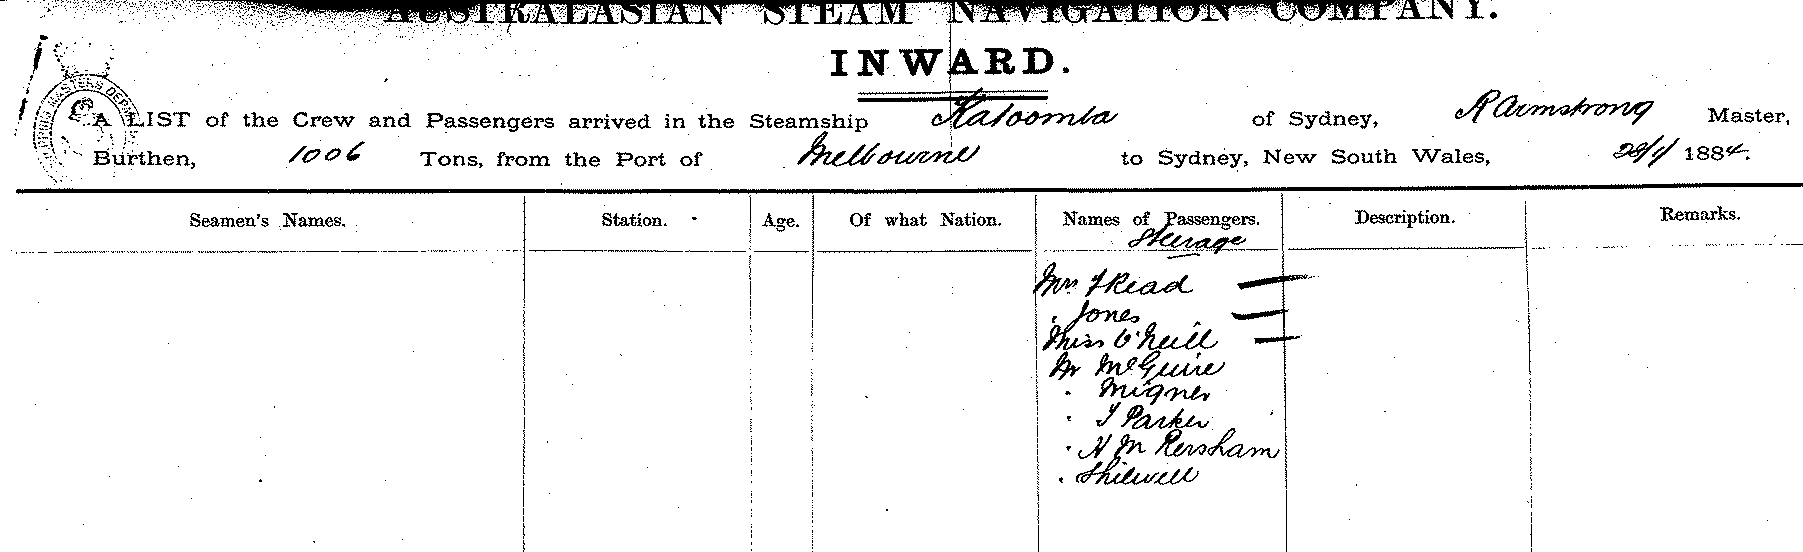 AUSTRALASIAN STEAM NAVIGATION COMPANY.
INWARD.
A LIST of the Crew and Passengers arrived in the Steamship Katoomba of Sydney, R Armstrong Master,
Burthen, 1006 Tons, from the Port of Melbourne to Sydney, New South Wales, 28/1/ 1884.
Seamen's Names. Station. Age. Of what Nation. Names of Passengers. Description. Remarks.
Steerage
Mrs Read
Jones
Miss O'Neill
Mr McGuire
Migner
T Parker
H M Kersham